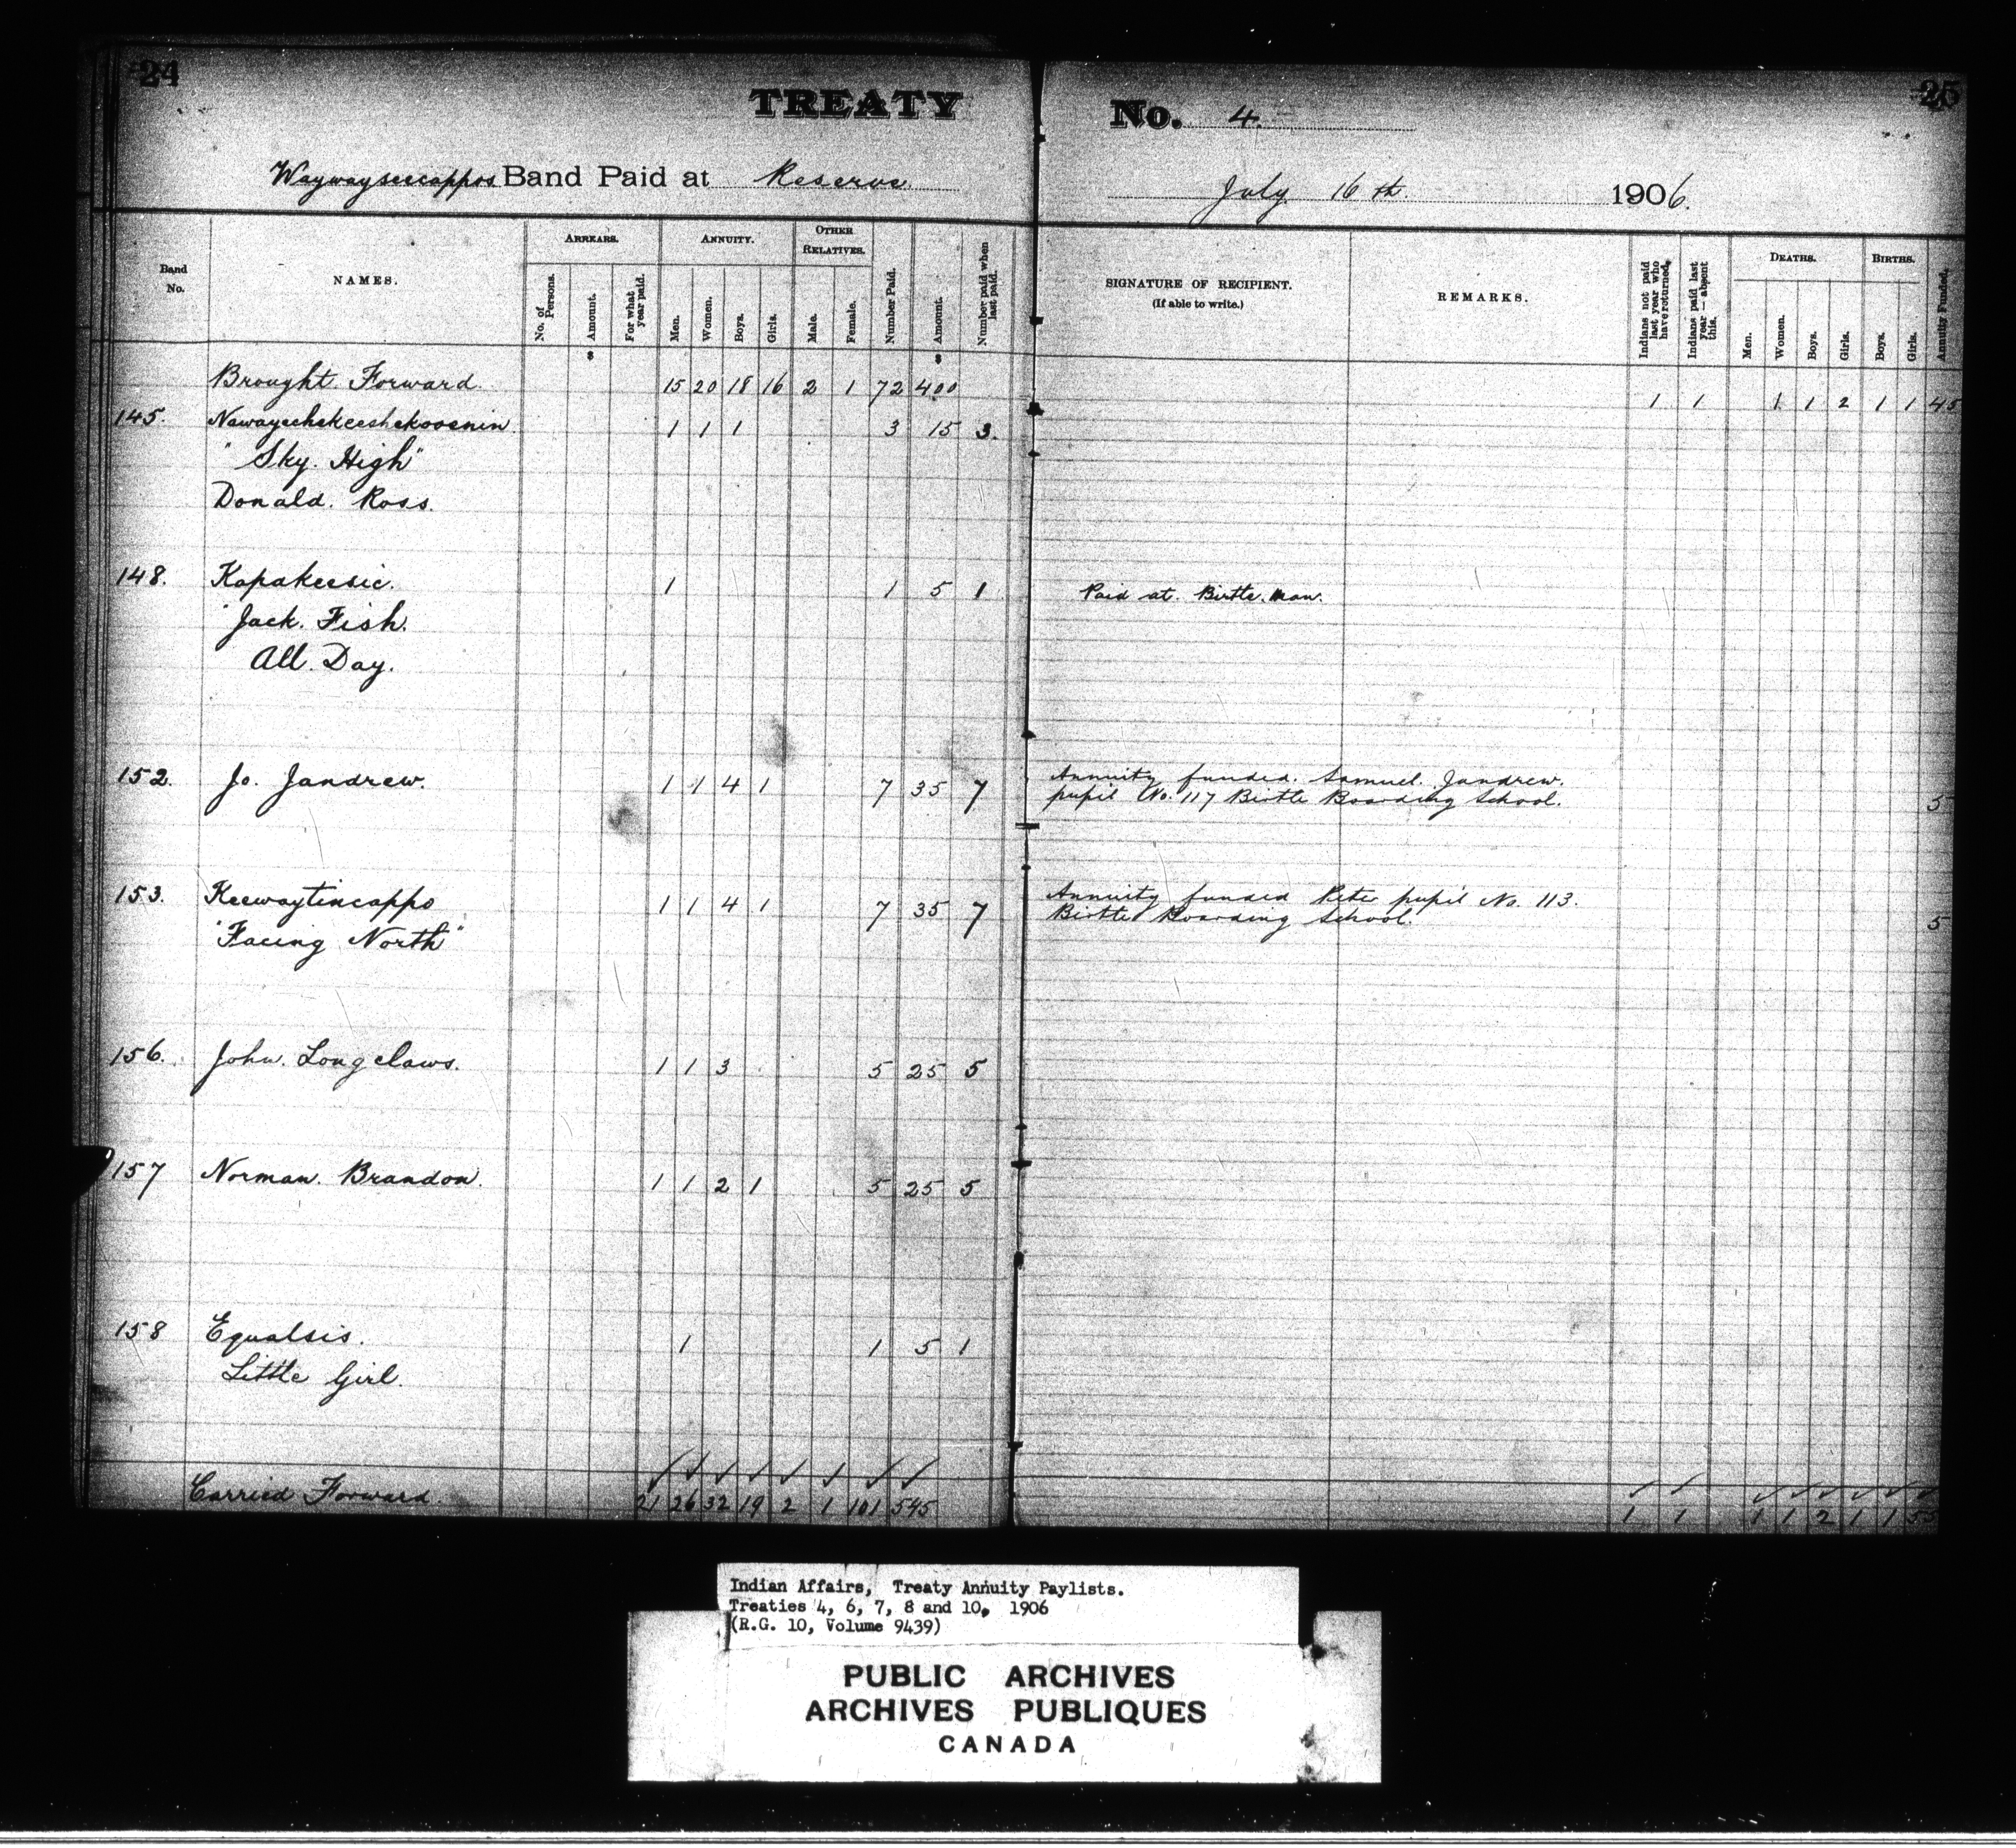 24
25
TREATY No. 4.
Waywayseecappos Band Paid at Reserve July 16th. 1906.
Band No.
NAMES.
ARREARS.
No. of Persons.
Amount.
For what year paid.
ANNUITY.
Men.
Women.
Boys.
Girls.
OTHER RELATIVES.
Male.
Female.
Number Paid.
Amount.
Number paid when last paid.
SIGNATURE OF RECIPIENT.
(If able to write.)
REMARKS.
Indians not paid last year who have returned.
Indians paid last year — absent this.
DEATHS.
Men.
Women.
Boys.
Girls.
BIRTHS.
Boys.
Girls.
Annuity Funded.
$ $
Brought Forward 15 20 18 16 2 1 72 400 1 1 1 1 2 1 1 45
145. Nawayeehekeeshekoosenin. 1 1 1 3 15 3.
"Sky. High"
Donald. Ross.
148. Kapakeesic. 1 1 5 1 Paid at. Birtle. Man.
"Jack. Fish.
All. Day.
152. Jo. Jandrew. 1 1 4 1 7 35 7 Annuity funded. Samuel. Jandrew.
pupil No. 117 Birtle Boarding School. 5
153. Keewaytincappo 1 1 4 1 7 35 7 Annuity funded Peter pupil No. 113.
"Facing North" Birtle Boarding School. 5
156. John. Longclaws. 1 1 3 5 25 5
157 Norman. Brandon. 1 1 2 1 5 25 5
158 Equalsis. 1 1 5 1
Little Girl.
Carried Forward. 21 26 32 19 2 1 101 545 1 1 1 1 2 1 1 55
Indian Affairs, Treaty Annuity Paylists.
Treaties 4, 6, 7, 8 and 10, 1906
(R.G. 10, Volume 9439)
PUBLIC ARCHIVES
ARCHIVES PUBLIQUES
CANADA